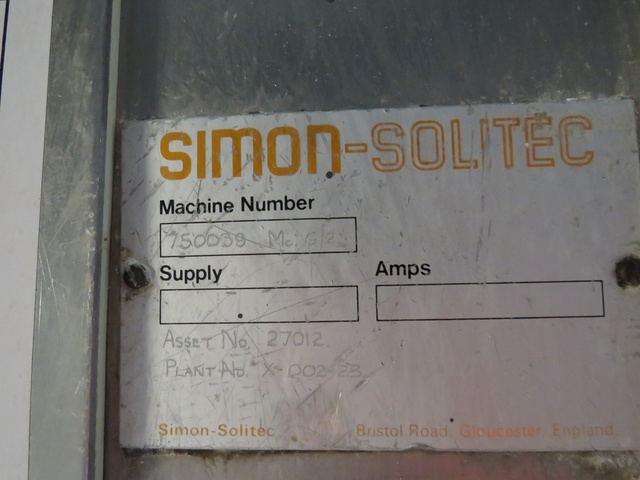 SIMON-SOLITEC
Machine Number
750039 Mc G/2
Supply Amps
ASSET No 27012.
PLANT No. X-D02-23
Simon-Solitec Bristol Road, Gloucester, England.